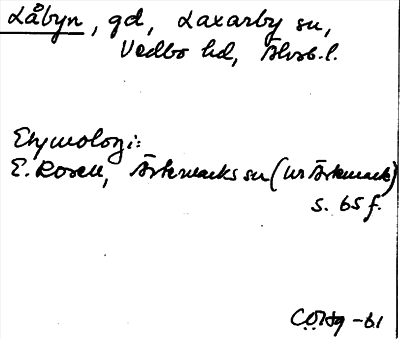 Låbyn, gd, Laxarby sn,
Vedbo hd, Älvsb.l.
Etymologi:
E. Rosell, Ärtemarks sn (ur Ärtemark)
s. 65 f.
CO Hg -61